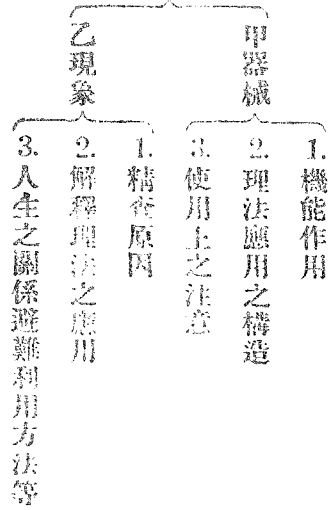 甲器械
1. 機能作用
2. 理法應用之構造
3. 使用上之注意
乙現象
1. 精查原因
2. 解釋理法之應用
3. 人生之關係避難利用方法等